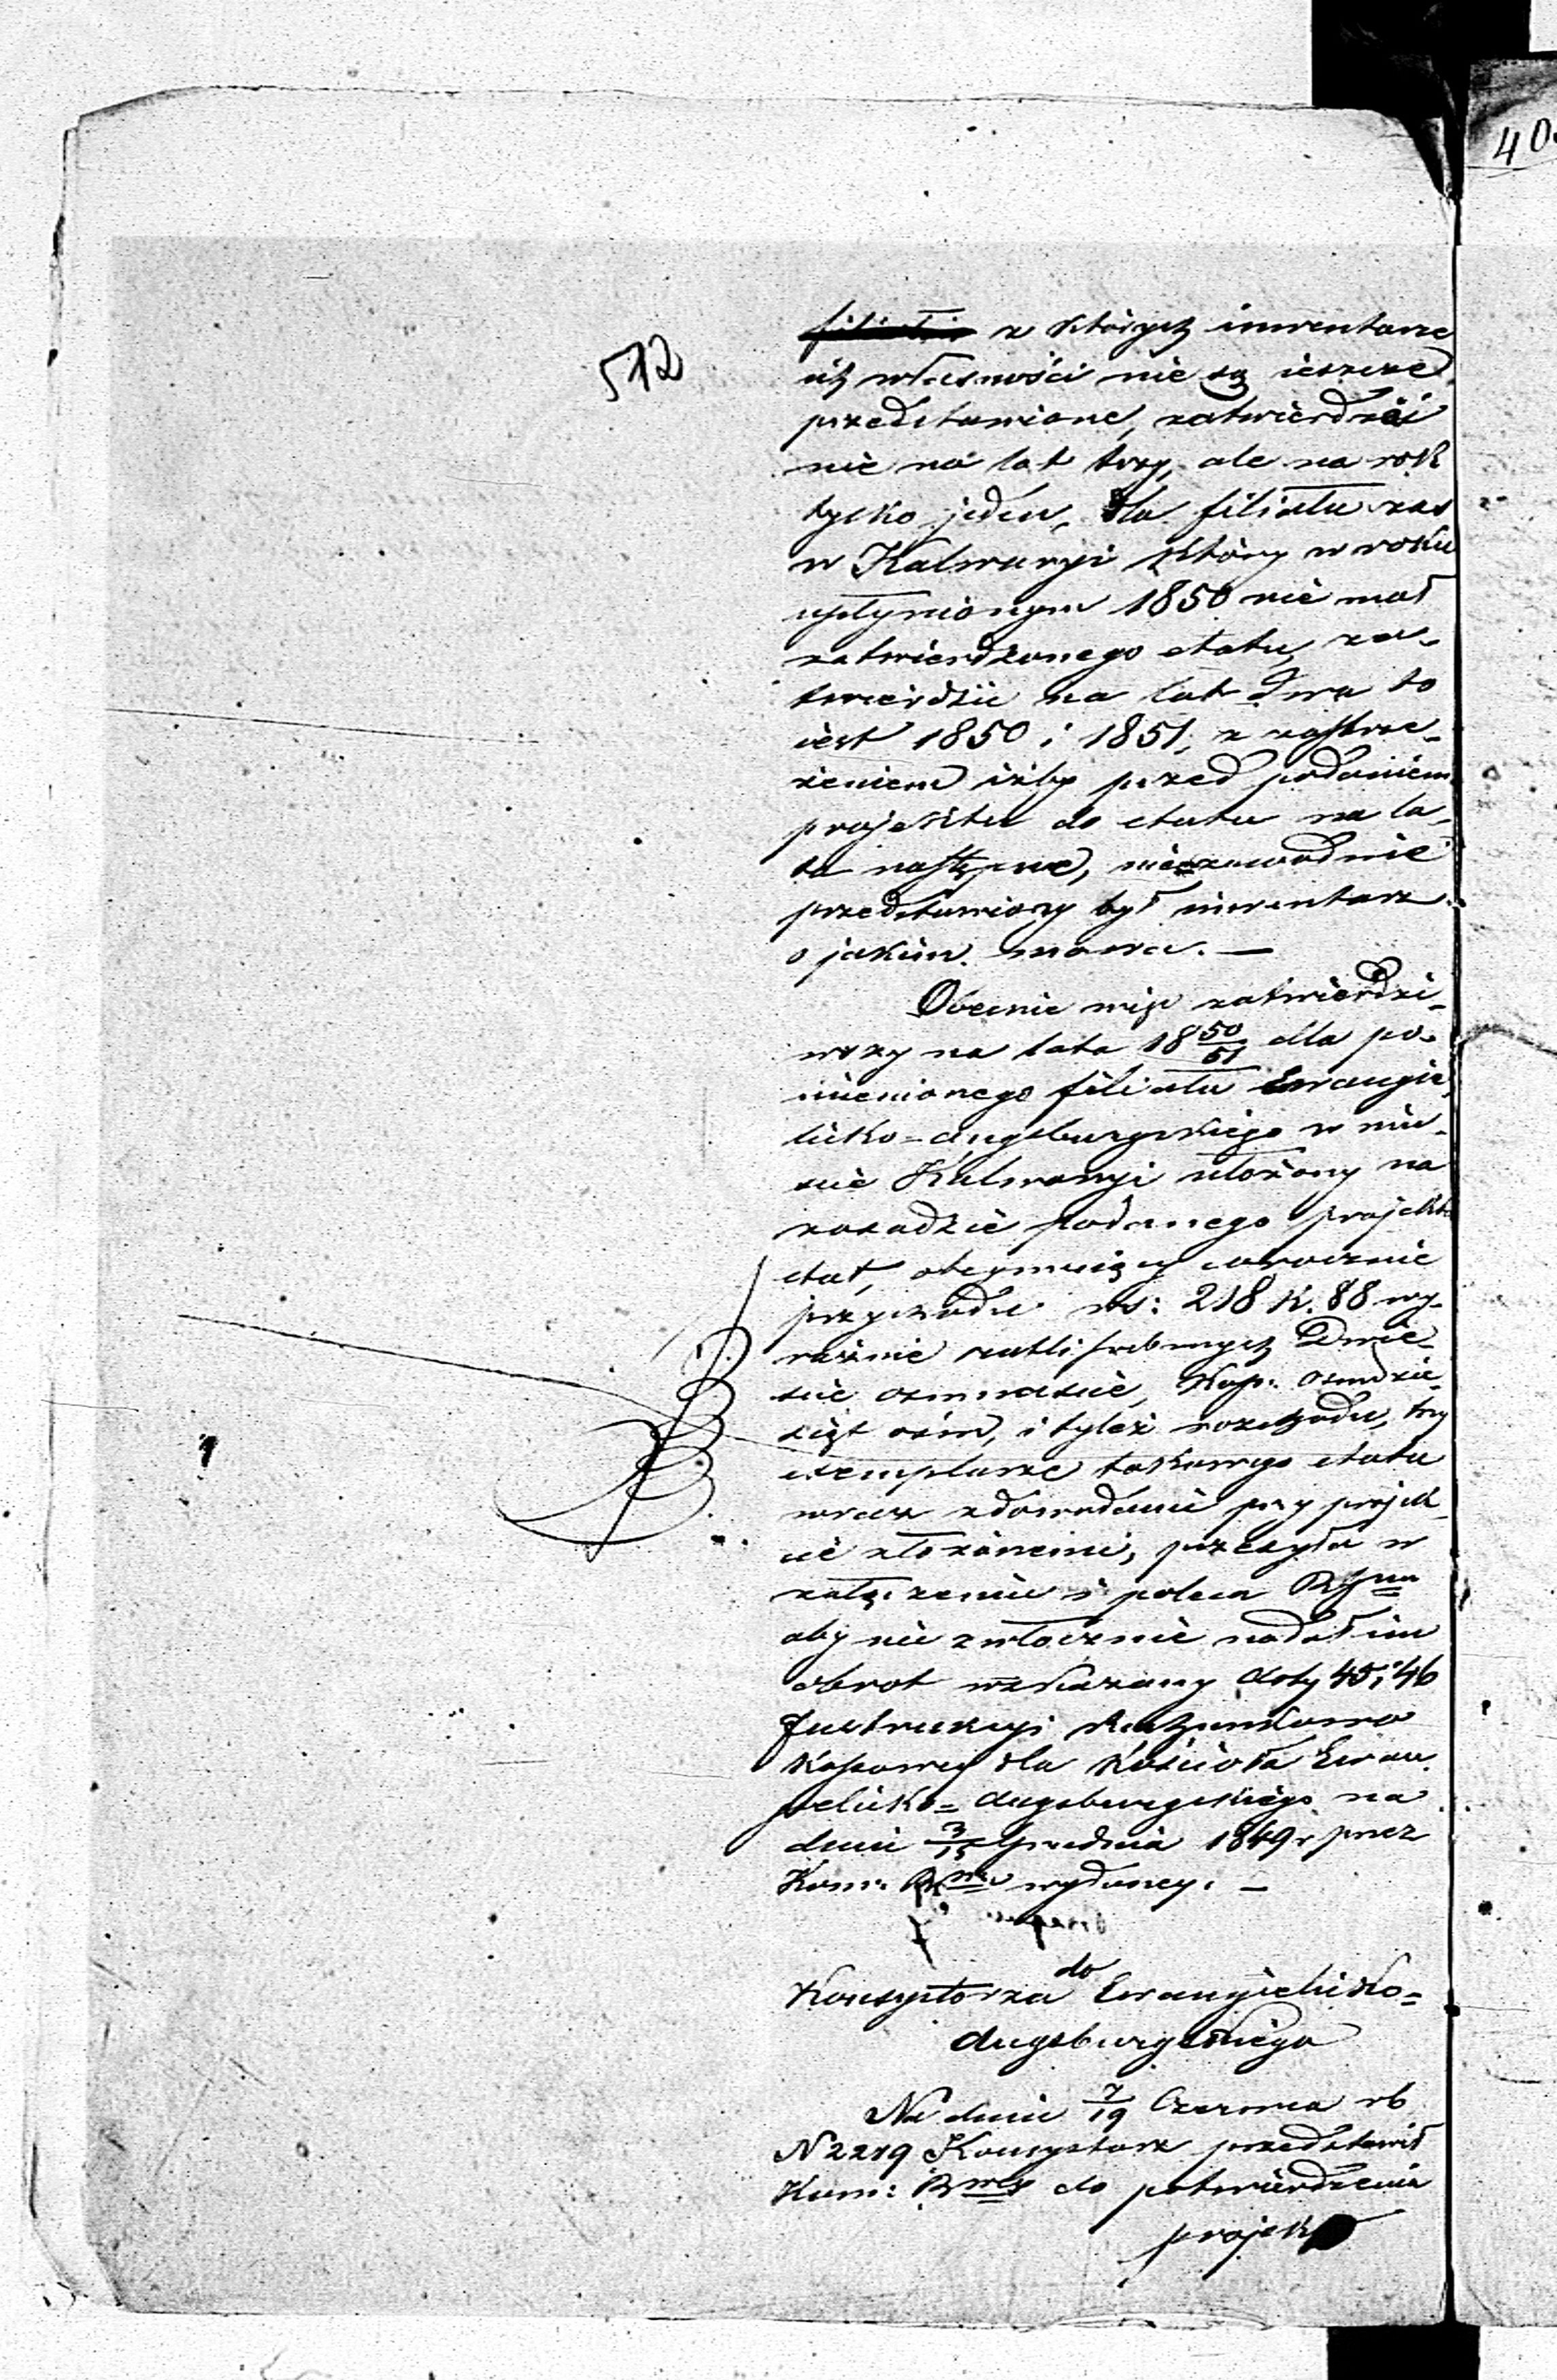 40
512
z których inwentarze
ich własności nie są ieszcze
przedstawione, zatwierdzać
nie na lat trzy, ale na rok
tylko jeden, dla filiału zas
w Kalwaryi który w roku
upłynionym 1850 nie miał
zatwierdzonego etatu, za-
twierdzić na lat dwa to
iest 1850 i 1851, z zastrze-
żeniem iżby przed podaniem
projektu do etatu na la-
ta następne, niezawodnie
przedstawiony był inwentarz
o jakim mowa. —
Obecnie więc zatwierdzi-
wszy na lata 18 50/51 dla po-
mienionego filiału Ewangie-
licko-augsburgskiego w mie-
scie Kalwaryi ułożony na
zasadzie podanego projektu
etat, obeymuiący corocznie
przychodu rs: 218 k. 88 wy-
raźnie rubli srebrnych Dwie-
scie osmnascie, Kop: osmdzie-
siąt ośm, i tyleż rozchodu, trzy
exemplarze takowego etatu
wraz z dowodami przy projek-
cie złożonemi, przesyła w
załączeniu i poleca
aby nie zwłocznie nadał im
obrot wskazany 45 i 46
Instrukcyi Rachunkowo
Kassowey dla Kościoła Ewan-
gelicko-augsburgskiego na
dniu 3/15 Grudnia 1849 r przez
Kom: wydaney. —
do
Konsystorza Ewangielicko-
Augsburgskiego
Na dniu 7/19 Czerwca rb
N 2219 Konsystorz przedstawił
Kom: do potwierdzenia
projekt